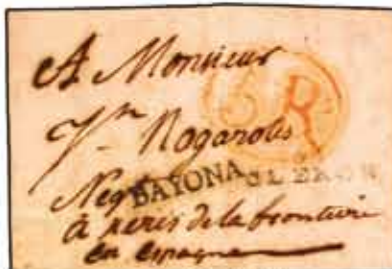 A Monsieur
6R
Jn Nogaroles
Neg
BAYONA
à xerès de la frontiere
en espagne